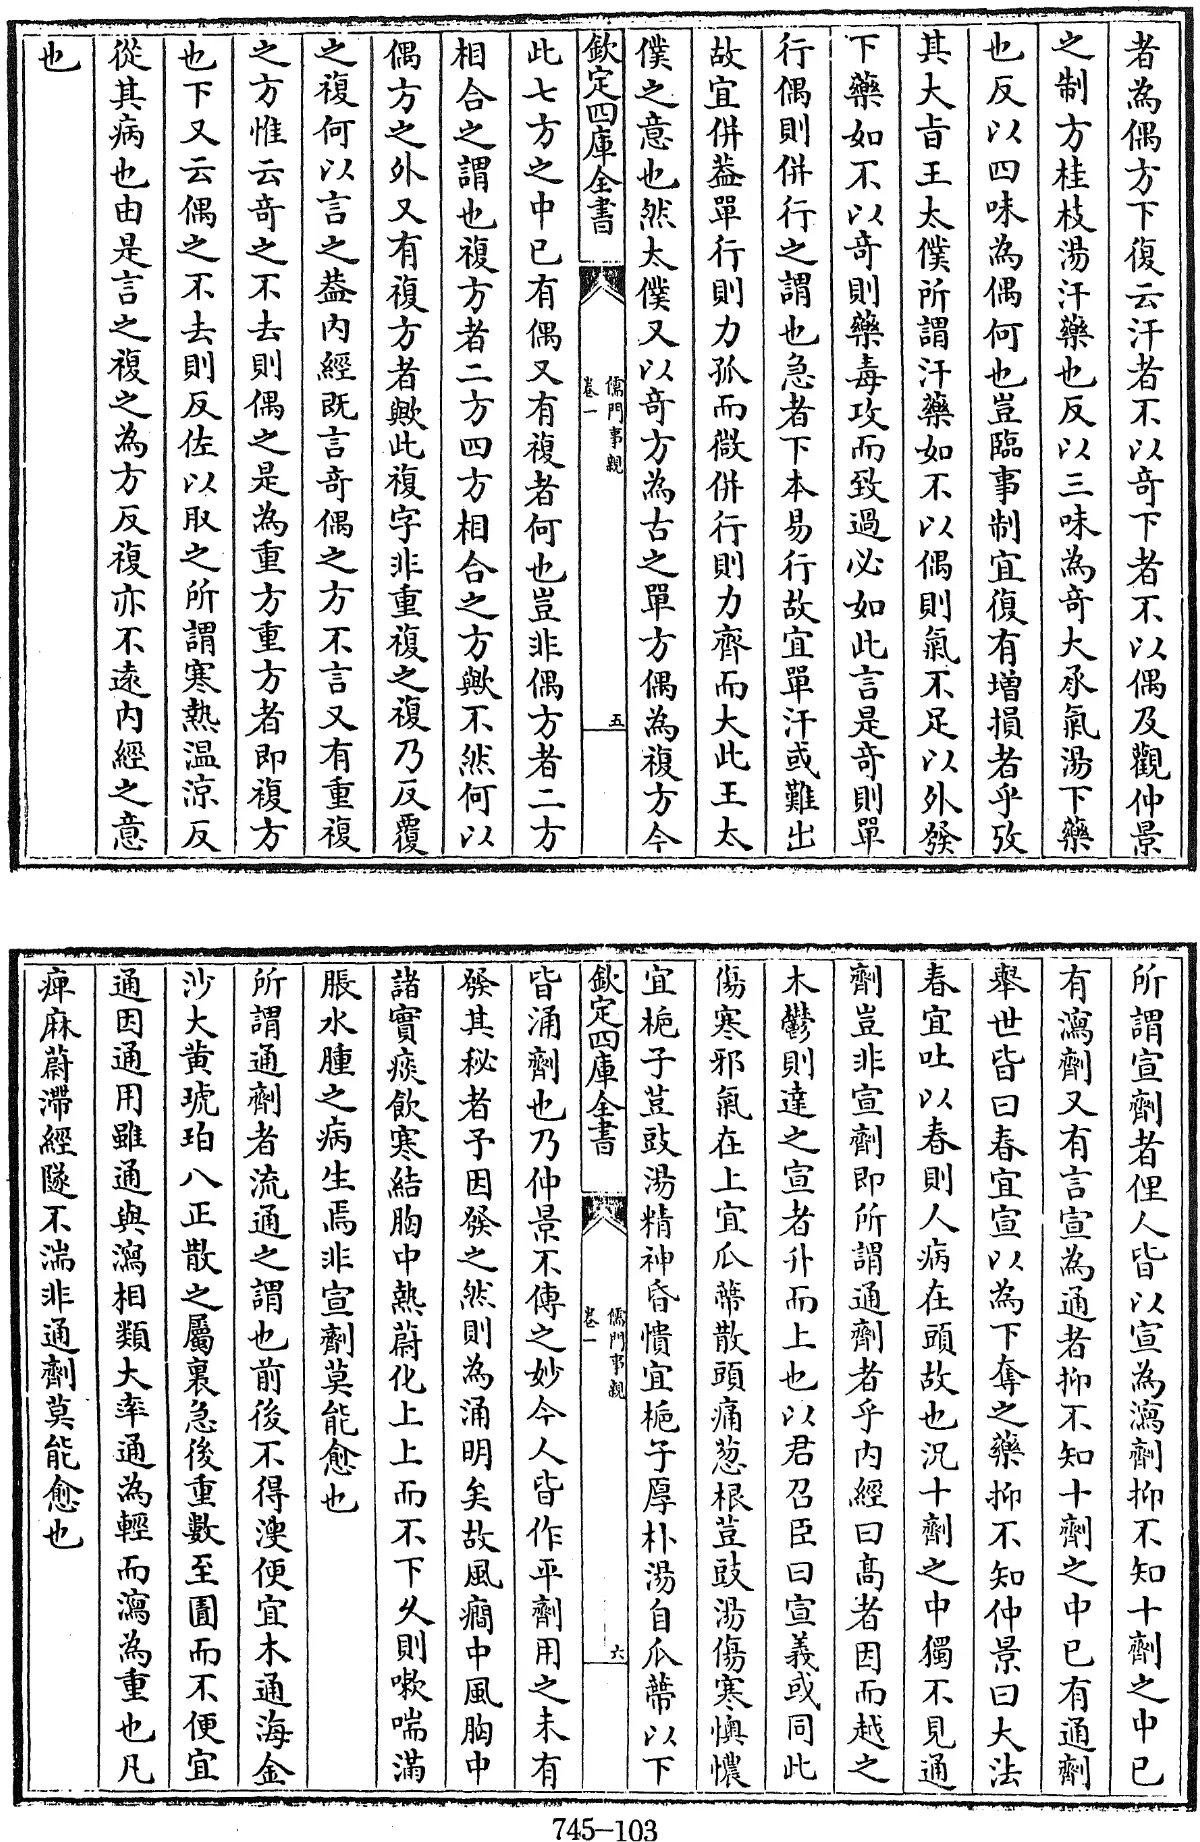 者為偶方下復云汗者不以奇下者不以偶及觀仲景
之制方桂枝湯汗藥也反以三味為奇大承氣湯下藥
也反以四味為偶何也豈臨事制宜復有增損者乎攷
其大旨王太僕所謂汗藥如不以偶則氣不足以外發
下藥如不以奇則藥毒攻而致過必如此言是奇則單
行偶則併行之謂也急者下本易行故宜單汗或難出
故宜併葢單行則力孤而微併行則力齊而大此王太
僕之意也然太僕又以奇方為古之單方偶為複方今
欽定四庫全書
儒門事親
卷一
五
此七方之中已有偶又有複者何也豈非偶方者二方
相合之謂也複方者二方四方相合之方歟不然何以
偶方之外又有複方者歟此複字非重複之複乃反覆
之複何以言之葢內經既言奇偶之方不言又有重複
之方惟云奇之不去則偶之是為重方重方者即複方
也下又云偶之不去則反佐以取之所謂寒熱温涼反
從其病也由是言之複之為方反複亦不遠內經之意
也
所謂宣劑者俚人皆以宣為瀉劑抑不知十劑之中已
有瀉劑又有言宣為通者抑不知十劑之中已有通劑
舉世皆曰春宜宣以為下奪之藥抑不知仲景曰大法
春宜吐以春則人病在頭故也況十劑之中獨不見通
劑豈非宣劑即所謂通劑者乎內經曰高者因而越之
木鬱則達之宣者升而上也以君召臣曰宣義或同此
傷寒邪氣在上宜瓜蒂散頭痛葱根荳豉湯傷寒懊憹
宜梔子荳豉湯精神昏憒宜梔子厚朴湯自瓜蒂以下
欽定四庫全書
儒門事親
卷一
六
皆涌劑也乃仲景不傳之妙今人皆作平劑用之未有
發其秘者予因發之然則為涌明矣故風癇中風胸中
諸實痰飲寒結胸中熱蔚化上上而不下久則嗽喘滿
脹水腫之病生焉非宣劑莫能愈也
所謂通劑者流通之謂也前後不得溲便宜木通海金
沙大黄琥珀八正散之屬裏急後重數至圊而不便宜
通因通用雖通與瀉相類大率通為輕而瀉為重也凡
痺麻蔚滯經隧不湍非通劑莫能愈也
745-103